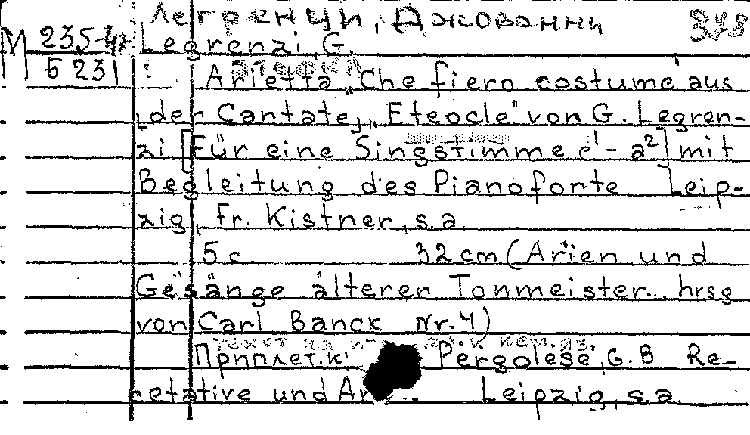 Легренци, Джованни 388
М 235-4
Legrenzi, G.
Б 231
Arietta „Che fiero costume" aus
der Cantate „Eteocle" von G. Legren-
zi [Für eine Singstimme e¹- a²] mit
Begleitung des Pianoforte Leip-
zig, Fr. Kistner, s.a.
5 c 32 cm (Arien und
Gesänge älterer Tonmeister. hrsg
von Carl Banck Nr. 4)
Приплет.к: Pergolese, G. B Re-
cetative und Leipzig, s.a